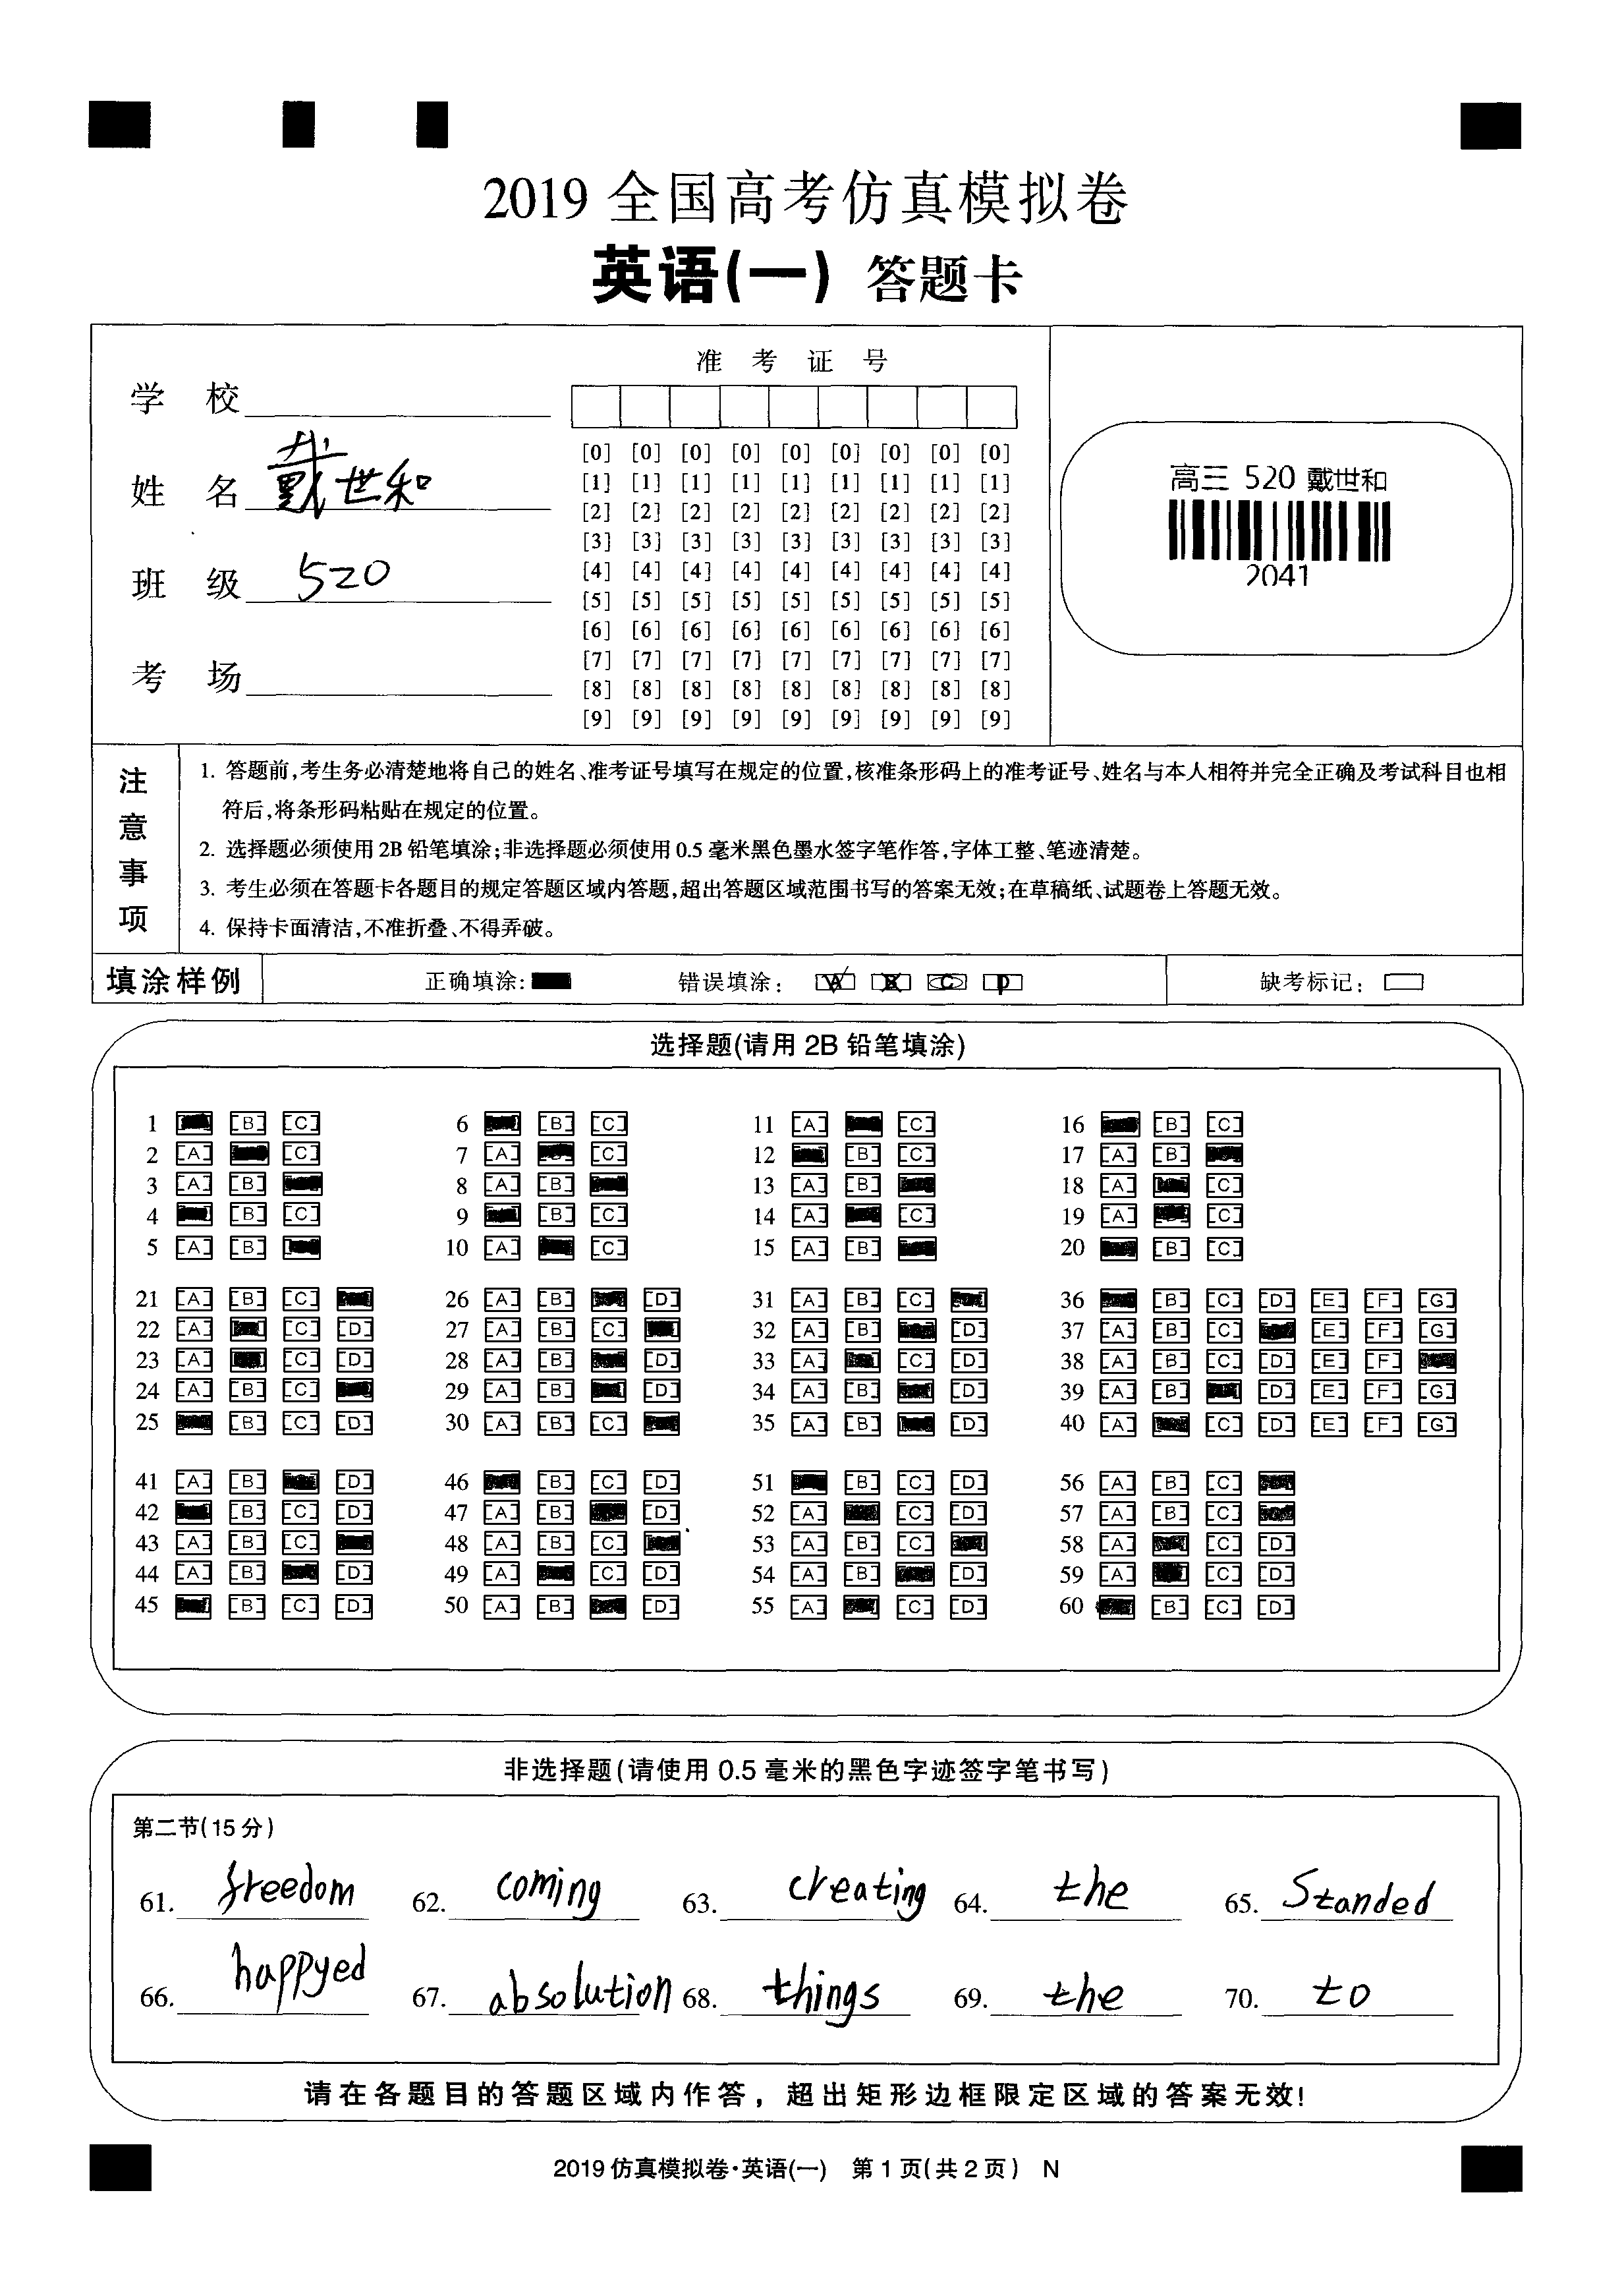 2019 全国高考仿真模拟卷
英语(一) 答题卡
学 校
姓 名 戴世和
班 级 520
考 场
准 考 证 号
[0] [0] [0] [0] [0] [0] [0] [0] [0]
[1] [1] [1] [1] [1] [1] [1] [1] [1]
[2] [2] [2] [2] [2] [2] [2] [2] [2]
[3] [3] [3] [3] [3] [3] [3] [3] [3]
[4] [4] [4] [4] [4] [4] [4] [4] [4]
[5] [5] [5] [5] [5] [5] [5] [5] [5]
[6] [6] [6] [6] [6] [6] [6] [6] [6]
[7] [7] [7] [7] [7] [7] [7] [7] [7]
[8] [8] [8] [8] [8] [8] [8] [8] [8]
[9] [9] [9] [9] [9] [9] [9] [9] [9]
高三 520 戴世和
2041
注意事项
1. 答题前,考生务必清楚地将自己的姓名、准考证号填写在规定的位置,核准条形码上的准考证号、姓名与本人相符并完全正确及考试科目也相
符后,将条形码粘贴在规定的位置。
2. 选择题必须使用2B铅笔填涂;非选择题必须使用0.5毫米黑色墨水签字笔作答,字体工整、笔迹清楚。
3. 考生必须在答题卡各题目的规定答题区域内答题,超出答题区域范围书写的答案无效;在草稿纸、试题卷上答题无效。
4. 保持卡面清洁,不准折叠、不得弄破。
填涂样例 正确填涂: 错误填涂: A B C D 缺考标记:
选择题(请用 2B 铅笔填涂)
1 [B] [C] 6 [B] [C] 11 [A] [C] 16 [B] [C]
2 [A] [C] 7 [A] [C] 12 [B] [C] 17 [A] [B]
3 [A] [B] 8 [A] [B] 13 [A] [B] 18 [A] [C]
4 [B] [C] 9 [B] [C] 14 [A] [C] 19 [A] [C]
5 [A] [B] 10 [A] [C] 15 [A] [B] 20 [B] [C]
21 [A] [B] [C] 26 [A] [B] [D] 31 [A] [B] [C] 36 [B] [C] [D] [E] [F] [G]
22 [A] [C] [D] 27 [A] [B] [C] 32 [A] [B] [D] 37 [A] [B] [C] [E] [F] [G]
23 [A] [C] [D] 28 [A] [B] [D] 33 [A] [C] [D] 38 [A] [B] [C] [D] [E] [F]
24 [A] [B] [C] 29 [A] [B] [D] 34 [A] [B] [D] 39 [A] [B] [D] [E] [F] [G]
25 [B] [C] [D] 30 [A] [B] [C] 35 [A] [B] [D] 40 [A] [C] [D] [E] [F] [G]
41 [A] [B] [D] 46 [B] [C] [D] 51 [B] [C] [D] 56 [A] [B] [C]
42 [B] [C] [D] 47 [A] [B] [D] 52 [A] [C] [D] 57 [A] [B] [C]
43 [A] [B] [C] 48 [A] [B] [C] 53 [A] [B] [C] 58 [A] [C] [D]
44 [A] [B] [D] 49 [A] [C] [D] 54 [A] [B] [D] 59 [A] [C] [D]
45 [B] [C] [D] 50 [A] [B] [D] 55 [A] [C] [D] 60 [B] [C] [D]
非选择题(请使用 0.5 毫米的黑色字迹签字笔书写)
第二节(15分)
61. freedom 62. coming 63. creating 64. the 65. Standed
66. happyed 67. absolution 68. things 69. the 70. to
请在各题目的答题区域内作答，超出矩形边框限定区域的答案无效!
2019 仿真模拟卷·英语(一) 第 1 页(共 2 页) N